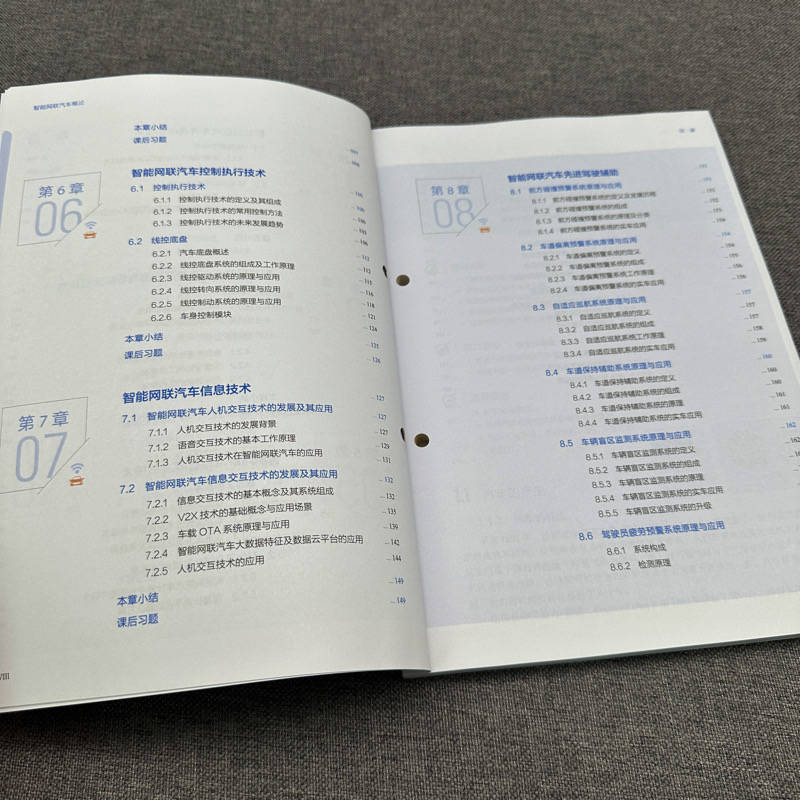 智能网联汽车概论
本章小结
课后习题
第6章
06
智能网联汽车控制执行技术
6.1 控制执行技术
6.1.1 控制执行技术的定义及其组成
6.1.2 控制执行技术的常用控制方法
6.1.3 控制执行技术的未来发展趋势
6.2 线控底盘
6.2.1 汽车底盘概述
6.2.2 线控底盘系统的组成及工作原理
6.2.3 线控驱动系统的原理与应用
6.2.4 线控转向系统的原理与应用
6.2.5 线控制动系统的原理与应用
6.2.6 车身控制模块
本章小结
课后习题
第7章
07
智能网联汽车信息技术 127
7.1 智能网联汽车人机交互技术的发展及其应用 127
7.1.1 人机交互技术的发展背景 127
7.1.2 语音交互技术的基本工作原理 129
7.1.3 人机交互技术在智能网联汽车的应用 131
7.2 智能网联汽车信息交互技术的发展及其应用 132
7.2.1 信息交互技术的基本概念及其系统组成 132
7.2.2 V2X 技术的基础概念与应用场景 135
7.2.3 车载 OTA 系统原理与应用 139
7.2.4 智能网联汽车大数据特征及数据云平台的应用 142
7.2.5 人机交互技术的应用 144
本章小结 149
课后习题 149
VIII
第8章
08
智能网联汽车先进驾驶辅助
8.1 前方碰撞预警系统原理与应用
8.1.1 前方碰撞预警系统的定义及发展历程
8.1.2 前方碰撞预警系统的组成
8.1.3 前方碰撞预警系统的原理及分类
8.1.4 前方碰撞预警系统的实车应用
8.2 车道偏离预警系统原理与应用
8.2.1 车道偏离预警系统的定义
8.2.2 车道偏离预警系统的组成
8.2.3 车道偏离预警系统工作原理
8.2.4 车道偏离预警系统的实车应用
8.3 自适应巡航系统原理与应用 157
8.3.1 自适应巡航系统的定义 157
8.3.2 自适应巡航系统的组成 157
8.3.3 自适应巡航系统工作原理 158
8.3.4 自适应巡航系统的实车应用 159
8.4 车道保持辅助系统原理与应用 160
8.4.1 车道保持辅助系统的定义 160
8.4.2 车道保持辅助系统的组成 160
8.4.3 车道保持辅助系统的原理 161
8.4.4 车道保持辅助系统的实车应用 161
8.5 车辆盲区监测系统原理与应用 162
8.5.1 车辆盲区监测系统的定义
8.5.2 车辆盲区监测系统的组成
8.5.3 车辆盲区监测系统的原理
8.5.4 车辆盲区监测系统的实车应用
8.5.5 车辆盲区监测系统的升级
8.6 驾驶员疲劳预警系统原理与应用
8.6.1 系统构成
8.6.2 检测原理